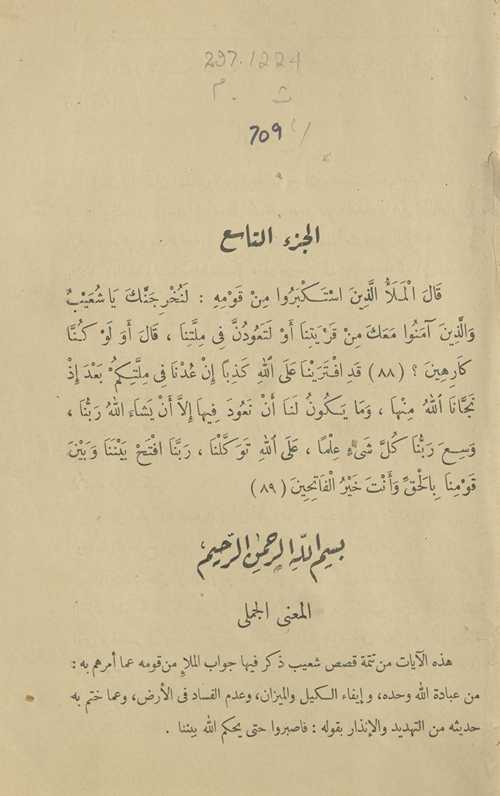 297.1224
م . ث
709
الجزء التاسع
قَالَ الْمَلَأُ الَّذِينَ اسْتَكْبَرُوا مِنْ قَوْمِهِ : لَنُخْرِجَنَّكَ يَا شُعَيْبُ
وَالَّذِينَ آمَنُوا مَعَكَ مِنْ قَرْيَتِنَا أَوْ لَتَعُودُنَّ فِى مِلَّتِنَا ، قَالَ أَوَ لَوْ كُنَّا
كَارِهِينَ ؟ (٨٨) قَدِ افْتَرَيْنَا عَلَى اللهِ كَذِبًا إِنْ عُدْنَا فِى مِلَّتِكُمْ بَعْدَ إِذْ
نَجَّانَا اللهُ مِنْهَا ، وَمَا يَكُونُ لَنَا أَنْ نَعُودَ فِيهَا إِلاَّ أَنْ يَشَاءَ اللهُ رَبُّنَا ،
وَسِعَ رَبُّنَا كُلَّ شَىْءٍ عِلْمًا ، عَلَى اللهِ تَوَكَّلْنَا ، رَبَّنَا افْتَحْ بَيْنَنَا وَبَيْنَ
قَوْمِنَا بِالْحَقِّ وَأَنْتَ خَيْرُ الْفَاتِحِينَ (٨٩)
بسم الله الرحمن الرحيم
المعنى الجملى
هذه الآيات من تتمة قصص شعيب ذكر فيها جواب الملإ من قومه عما أمرهم به :
من عبادة الله وحده، و إيفاء الكيل والميزان، وعدم الفساد فى الأرض، وعما ختم به
حديثه من التهديد والإنذار بقوله : فاصبروا حتى يحكم الله بيننا .